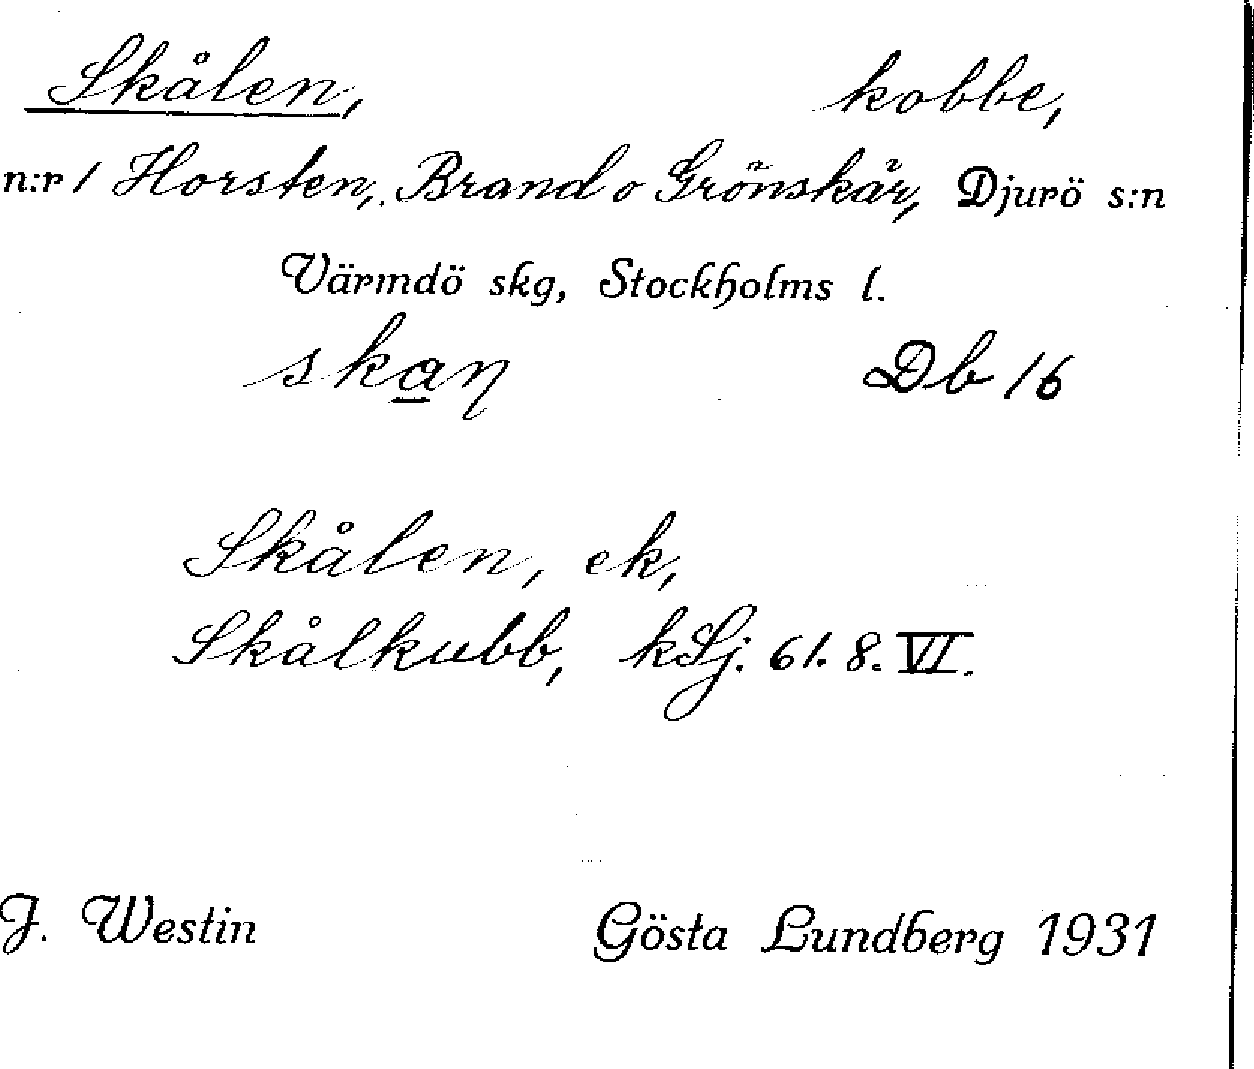 Skålen, kobbe,
n:r 1 Horsten, Brand o Grönskär, Djurö s:n
Värmdö skg, Stockholms l.
skaŋ Db 16
Skålen, ek,
Skålkubb, kSj. 61. 8. VI.
J. Westin Gösta Lundberg 1931